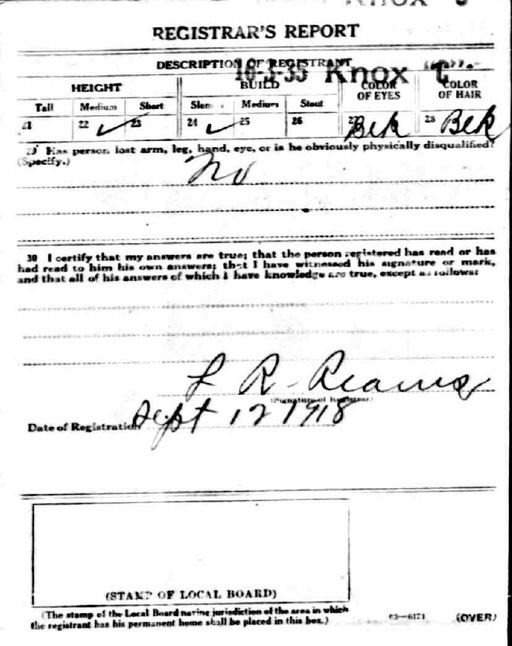 REGISTRAR'S REPORT
DESCRIPTION OF REGISTRANT
10-3-35 Knox C
HEIGHT BUILD COLOR OF EYES COLOR OF HAIR
Tall Medium Short Slender Medium Stout
21 22 ✓ 23 24 ✓ 25 26 27 Blk 28 Blk
29 Has person lost arm, leg, hand, eye, or is he obviously physically disqualified?
(Specify.) No
30 I certify that my answers are true; that the person registered has read or has
had read to him his own answers; that I have witnessed his signature or mark,
and that all of his answers of which I have knowledge are true, except as follows:
L R Reams
(Signature of Registrar)
Date of Registration Sept 12 1918
(STAMP OF LOCAL BOARD)
(The stamp of the Local Board having jurisdiction of the area in which
the registrant has his permanent home shall be placed in this box.)
03—6171 (OVER)